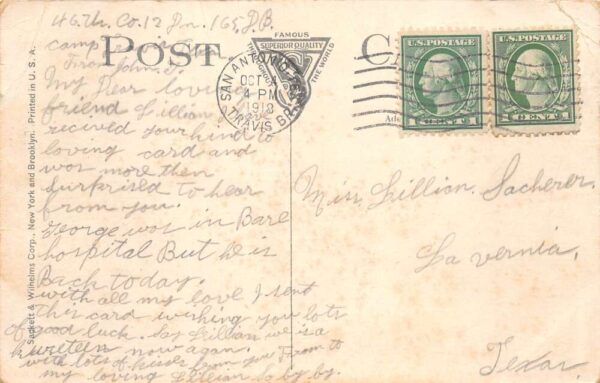 46.Th. Co. 12 Pn. 165, D.B.
camp
From John, J.
My Dear loving
friend Lillian I
recived your kind to
loving card and
wos more then
surferised to hear
from you.
George wos in Base
hospital But he is
Back today.
with all my love I sent
this card wishing you lots
of good luck. Say Lillian we is a
kureteen now again.
with lots of kisses from you From to
my loving Lillian So by by.
POST
FAMOUS
SUPERIOR QUALITY
THE WORLD
SAN ANTONIO, TEX.
OCT
4 PM
1918
TRAVIS BR.
U.S. POSTAGE
1 CENT 1
U.S. POSTAGE
1 CENT 1
Miss, Lillian, Sacherer.
La vernia,
Texas,
Sackett & Wilhelms Corp., New York and Brooklyn. Printed in U. S. A.